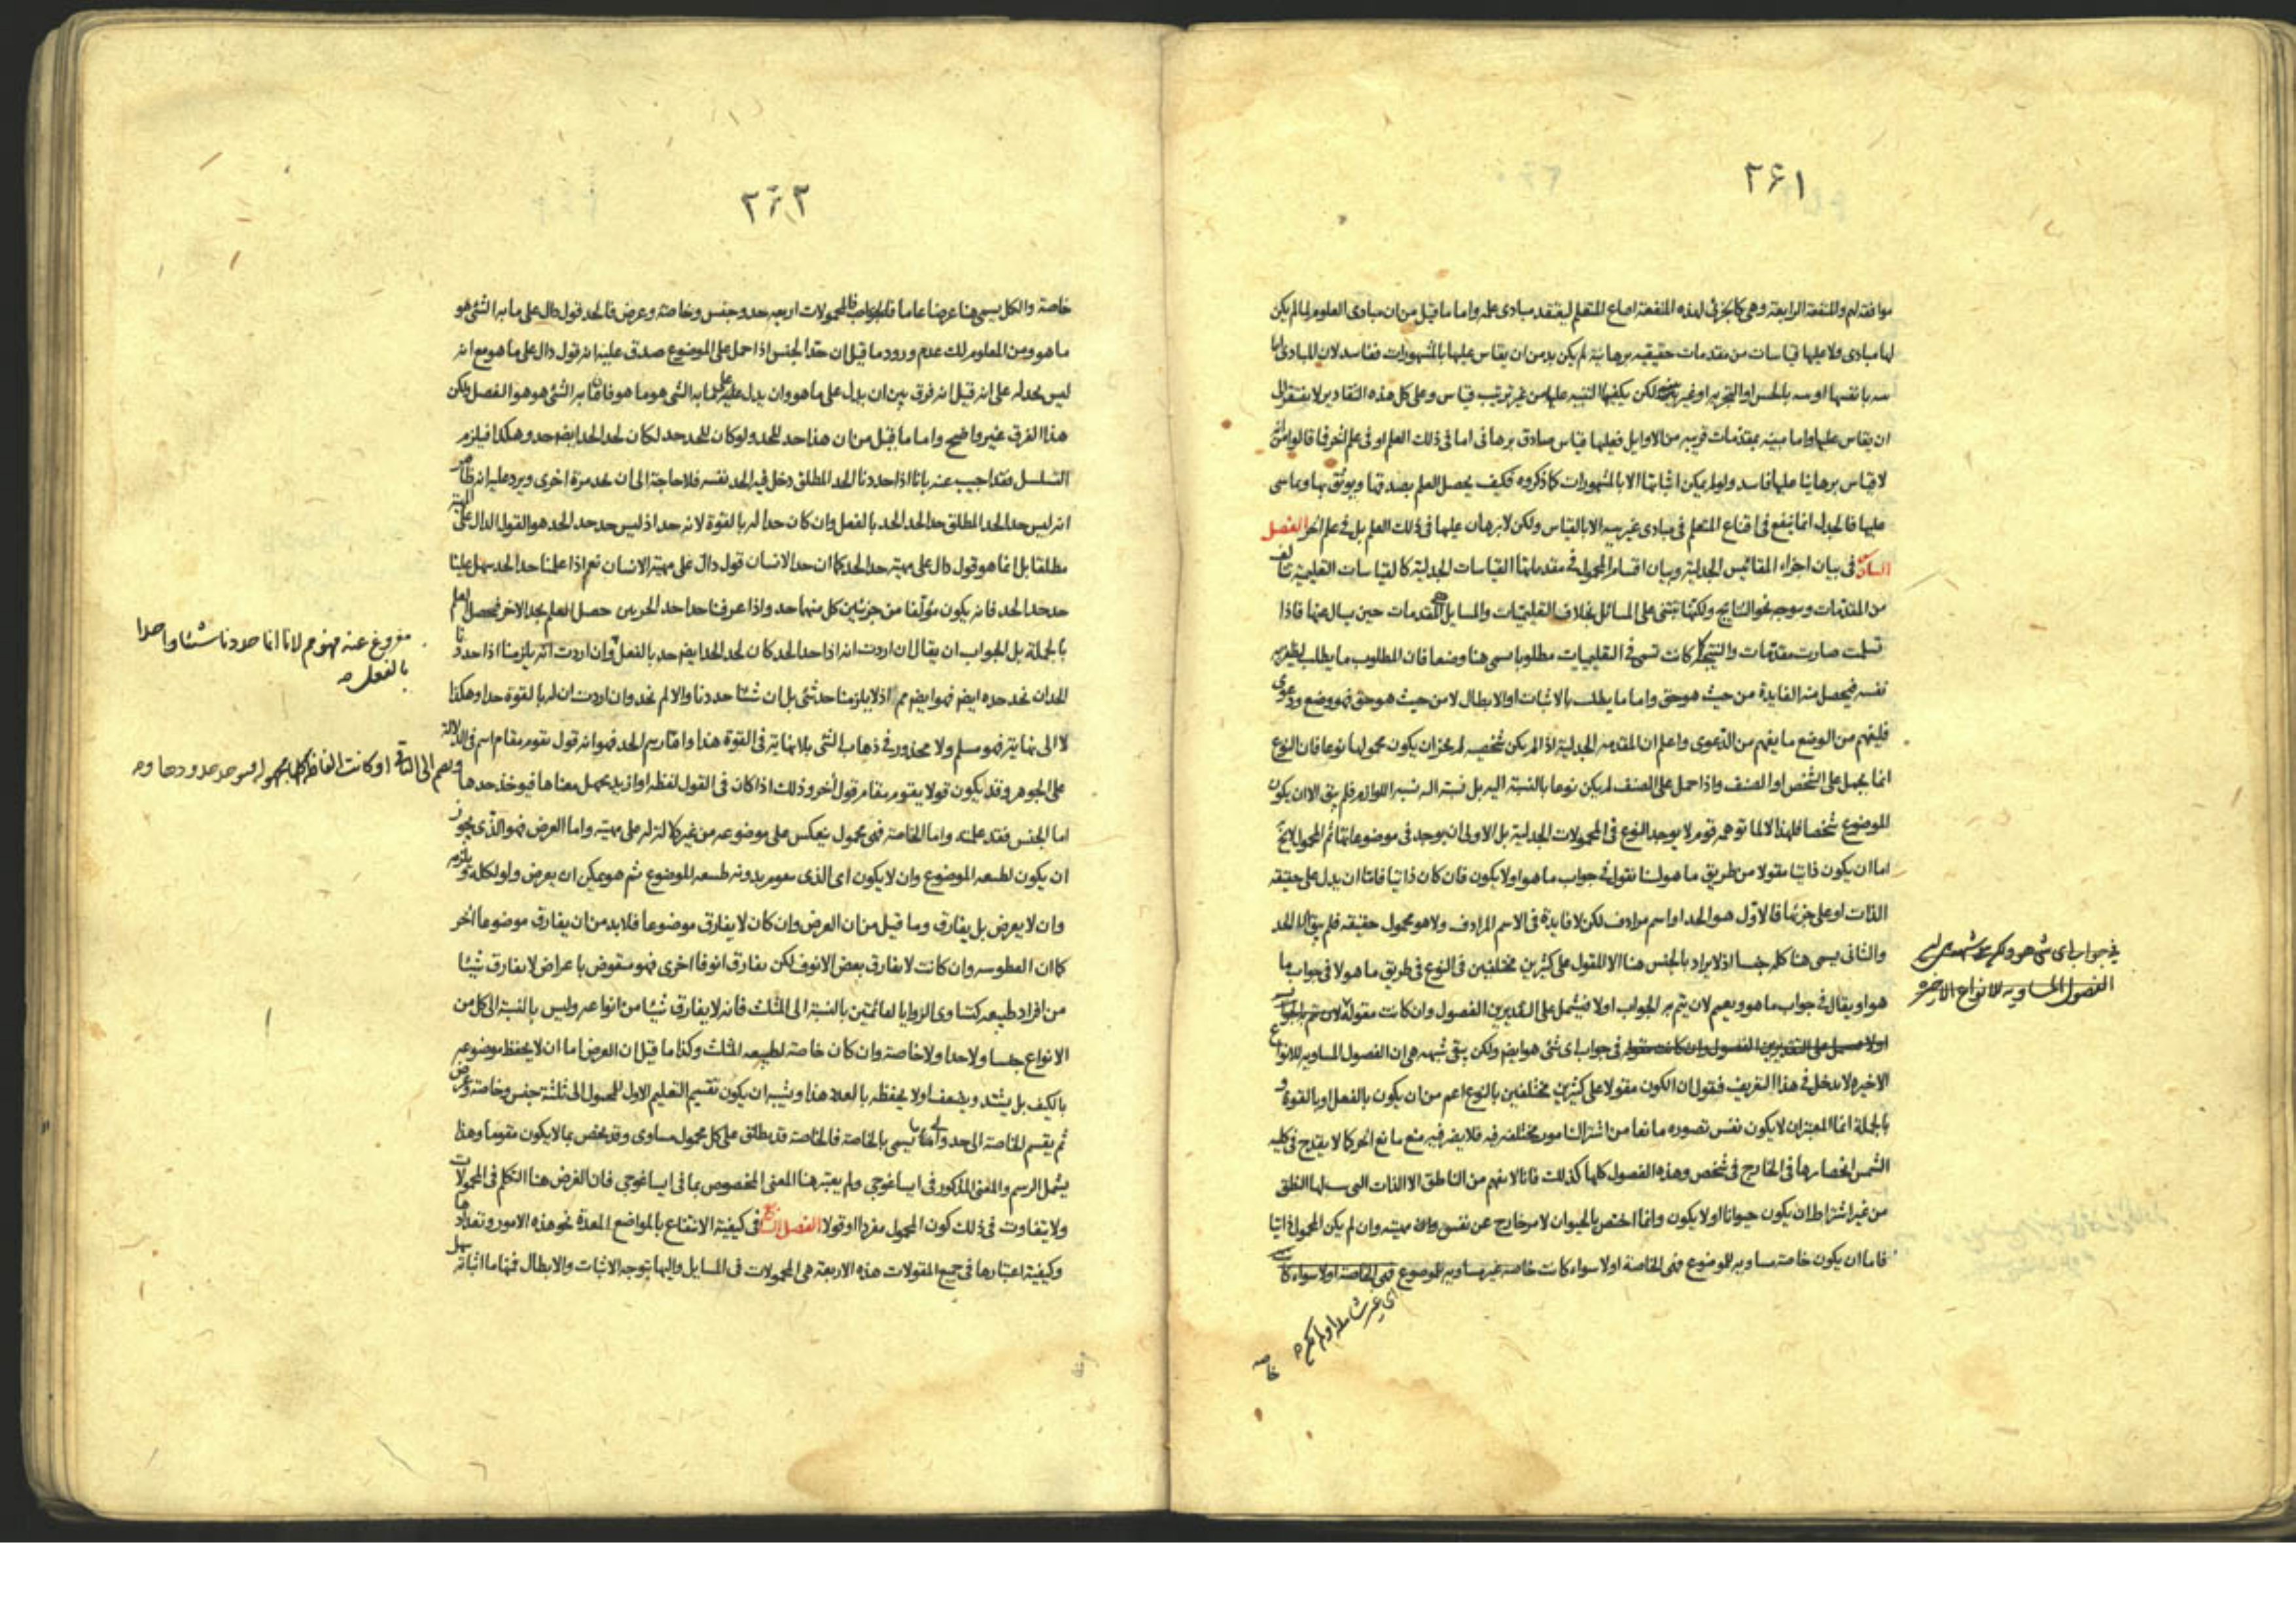 ۲۶۱
موافقته لهم والمنفعة الرابعة وهى كالجزئى لهذه المنفعة اقناع المتعلم ليفتقد مبادى علمه واما ما قيل من ان مبادى العلوم لما لم يكن
لها مبادى ولا عليها قياسات من مقدمات حقيقيه برهانية لم يكن بد من ان يقاس عليها بالمشهورات ففاسد لان المبادى اما
بينه بانفسها او بينه بالحس او التجربه او غير بينه لكن يكفيها التنبيه عليها من غير ترتيب قياس وعلى كل هذه التقادير لا يفتقر الى
ان يقاس عليها واما مبينه بمقدمات قريبه من الاوايل فعليها قياس صادق برهانى اما فى ذلك العلم او فى علم اخر فما قالوا من انه
لا قياس برهانيا عليها فاسد ولو لم يكن اثباتها الا بالمشهورات كما ذكروه فكيف يحصل العلم بصدقها ويوثق بها وبما بنى
عليها فالجدل انما ينفع فى اقناع المتعلم فى مبادى غير بينه الا بالقياس ولكن لا برهان عليها فى ذلك العلم بل فى علم اخر الفصل
السادس فى بيان اجزاء المقائيس الجدلية وبيان اقسام المحمول فى مقدماتها القياسات الجدلية كالقياسات التعليمية تتالف
من المقدمات وموجهه نحو النتايج ولكنها تبتنى على المسائل بخلاف التعليميات والمسايل هى المقدمات حين يسال عنها فاذا
تسلمت صارت مقدمات والنتيجة كما كانت تسمى فى التعليميات مطلوبا تسمى هنا وضعا فان المطلوب ما يطلب لظفريه
نفسه فيحصل منه الفايدة من حيث هو حق واما ما يطلب بالاثبات او الابطال لا من حيث هو حق فهو وضع ودعوى
فليفهم من الوضع ما يفهم من الدعوى واعلم ان المقدمه الجدلية اذا لم يكن شخصيه لم يجز ان يكون محمولها نوعا فان النوع
انما يحمل على الشخص او الصنف واذا حمل على الصنف لم يكن نوعا بالنسبة اليه بل نسبته اليه نسبة اللوازم فلم يبق الا ان يكون
الموضوع شخصا فلهذا لا لما توهمه قوم لا يوجد النوع فى المحمولات الجدلية بل الاولى ان يوجد فى موضوعاتها ثم المحمول لا يخ
اما ان يكون ذاتيا مقولا من طريق ما هو لسنا نقول فى جواب ما هو او لا يكون فان كان ذاتيا فاما ان يدل على حقيقه
الذات او على جزئها فالاول هو الحد او اسم مرادف لكن لا فايدة فى الاسم المرادف ولا هو محمول حقيقه فلم يبق الا الحد
والثانى يسمى هنا كله جنسا اذ لا يراد بالجنس هنا الا المقول على كثيرين مختلفين فى النوع فى طريق ما هو لا فى جواب ما
هو او يقال فى جواب ما هو ويعم لان يتم به الجواب او لا فيشمل على التقديرين الفصول وان كانت مقولة لان يتم به الجواب
او لا فيشمل على التقديرين الفصول وان كانت مقوله فى جواب اى شئ هو ايضم ولكن يبقى شبهه هى ان الفصول المساويه للانواع
الاخيره لا يدخل فى هذا التعريف فنقول ان الكون مقولا على كثيرين مختلفين بالنوع اعم من ان يكون بالفعل او بالقوة و
بالجملة انما المعتبر ان لا يكون نفس تصوره مانعا من اشتراك امور مختلفه فيه فلا يضر فيه منع مانع اخر كما لا يقدح فى كليه
الشمس انحصارها فى الخارج فى شخص وهذه الفصول كلها كذلك فانا لا نفهم من الناطق الا الذات التى لها النطق
من غير اشتراط ان يكون حيوانا او لا يكون وانما اختص بالحيوان لامر خارج عن نفس مهيته وان لم يكن المحمول ذاتيا
فاما ان يكون خاصة مساويه للموضوع فهى الخاصة او لا سواء كانت خاصه غير مساويه للموضوع فهى الخاصة او لا سواء كانت
اى غير شاملة او لم تكن
خاصه
فى جواب اى شئ هو ولكن يبقى شبهه هى ان
الفصول المساويه للانواع الاخيره
۲۶۲
خاصة والكل يسمى هنا عرضا عاما فالجواب فالمحمولات اربعه حد وجنس وخاصة وعرض فالحد قول دال على ما به الشئ هو
ما هو ومن المعلوم لك عدم ورود ما قيل ان حد الجنس اذا حمل على الموضوع صدق عليه انه قول دال على ما هو مع انه
ليس بحد له على انه قيل انه فرق بين ان يدل على ما هو وان يدل على ما به الشئ هو ما هو فان ما به الشئ هو هو الفصل ولكن
هذا الفرق غير واضح واما ما قيل من ان هذا حد للحد ولو كان للحد حد لكان لحد الحد ايضم حد وهكذا فيلزم
التسلسل فقد اجيب عنه بانا اذا حددنا الحد المطلق دخل فيه الحد نفسه فلا حاجة الى ان نحد مرة اخرى ويرد عليه انه ظاهر
انه ليس حد الحد المطلق حد الحد الحد بالفعل وان كان حدا له بالقوة لانه حد اذ ليس حد حد الحد هو القول الدال على المهية
مطلقا بل انما هو قول دال على مهية حد الحد كما ان حد الانسان قول دال على مهية الانسان نعم اذا علمنا حد الحد سهل علينا
حد حد الحد فانه يكون مؤلفا من جزئين كل منهما حد واذا عرفنا حد احد الجزيين حصل العلم بحد الاخر فيحصل العلم
بالجملة بل الجواب ان يقال ان اردت انه اذا حد الحد كان لحد الحد ايضم حد بالفعل وان اردت انه يلزمنا اذا حددنا
الحد ان نحد حده ايضم فهو ايضم مم اذ لا يلزمنا حد شئ بل ان شئنا حددنا والا لم نحد وان اردت ان له بالقوة حدا وهكذا
لا الى نهاية فهو مسلم ولا محذور فى ذهاب الشئ بلا نهاية فى القوة هذا واما رسم الحد فهو انه قول يقوم مقام اسم فى الدلالة
على الجوهر وقد يكون قولا يقوم مقام قول اخر وذلك اذا كان فى القول لفظه او ازيد يجهل معناها فيوخذ حدها
اما الجنس فقد علمته واما الخاصة فهى محمول ينعكس على موضوعه من غير دلالة له على مهيته واما العرض فهو الذى يجوز
ان يكون لطبيعه الموضوع وان لا يكون اى الذى يقوم بدونه طبيعه الموضوع ثم هو يمكن ان يعرض ولو لكله ويلزمه
وان لا يعرض بل يفارق وما قيل من ان العرض وان كان لا يفارق موضوعا فلا بد من ان يفارق موضوعا اخر
كما ان الفطوسه وان كانت لا يفارق بعض الانوف لكن يفارق انوفا اخرى فهو منقوض باعراض لا يفارق شيئا
من افراد طبيعه كتساوى الزوايا لقائمتين بالنسبة الى المثلث فانه لا يفارق شيئا من انواعه وليس بالنسبة الى كل من
الانواع جنسا ولا حدا ولا خاصة وان كان خاصة لطبيعه المثلث وكذا ما قيل ان العرض اما ان لا يحفظ موضوعه
بالكيف بل يشتد ويضعف او لا يحفظه بالعدد هذا ويشبه ان يكون تقسيم التعليم الاول المحمول الى ثلثة جنس وخاصة وعرض
ثم يقسم الخاصة الى حد والى ما يسمى بالخاصة فالخاصة قد يطلق على كل محمول مساوى وقد يخص بما لا يكون مقوما وهذا
يشمل الرسم والمعنى المذكور فى ايساغوجى ولم يعتبر هنا المعنى المخصوص بما فى ايساغوجى فان الغرض هنا التكلم فى المحمولات
ولا يتفاوت فى ذلك كون المحمول مفردا او قولا الفصل السابع فى كيفية الانتفاع بالمواضع المعدة نحو هذه الامور وتعدادها
وكيفية اعتبارها فى جميع المقولات هذه الاربعة هى المحمولات فى المسايل واليها يتوجه الاثبات والابطال فمنها ما اثباته سهل
مفروغ عنه فهو مم لانا انما حددنا شيئا واحدا
بالفعل
او كانت الفاظه كلها مجهوله فيوخذ حدودها